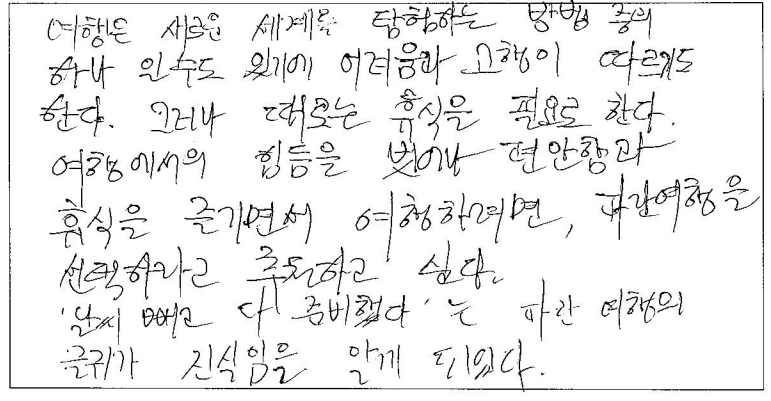 여행은 새로운 세계를 탐험하는 방법 중의
하나 일수도 있기에 어려움과 고행이 따르기도
한다. 그러나 때로는 휴식을 필요로 한다.
여행에서의 힘듬을 벗어나 편안함과
휴식을 즐기면서 여행하려면, 파란여행을
선택하라고 추천하고 싶다.
'날씨 빼고 다 준비했다'는 파란 여행의
글귀가 진실임을 알게 되었다.